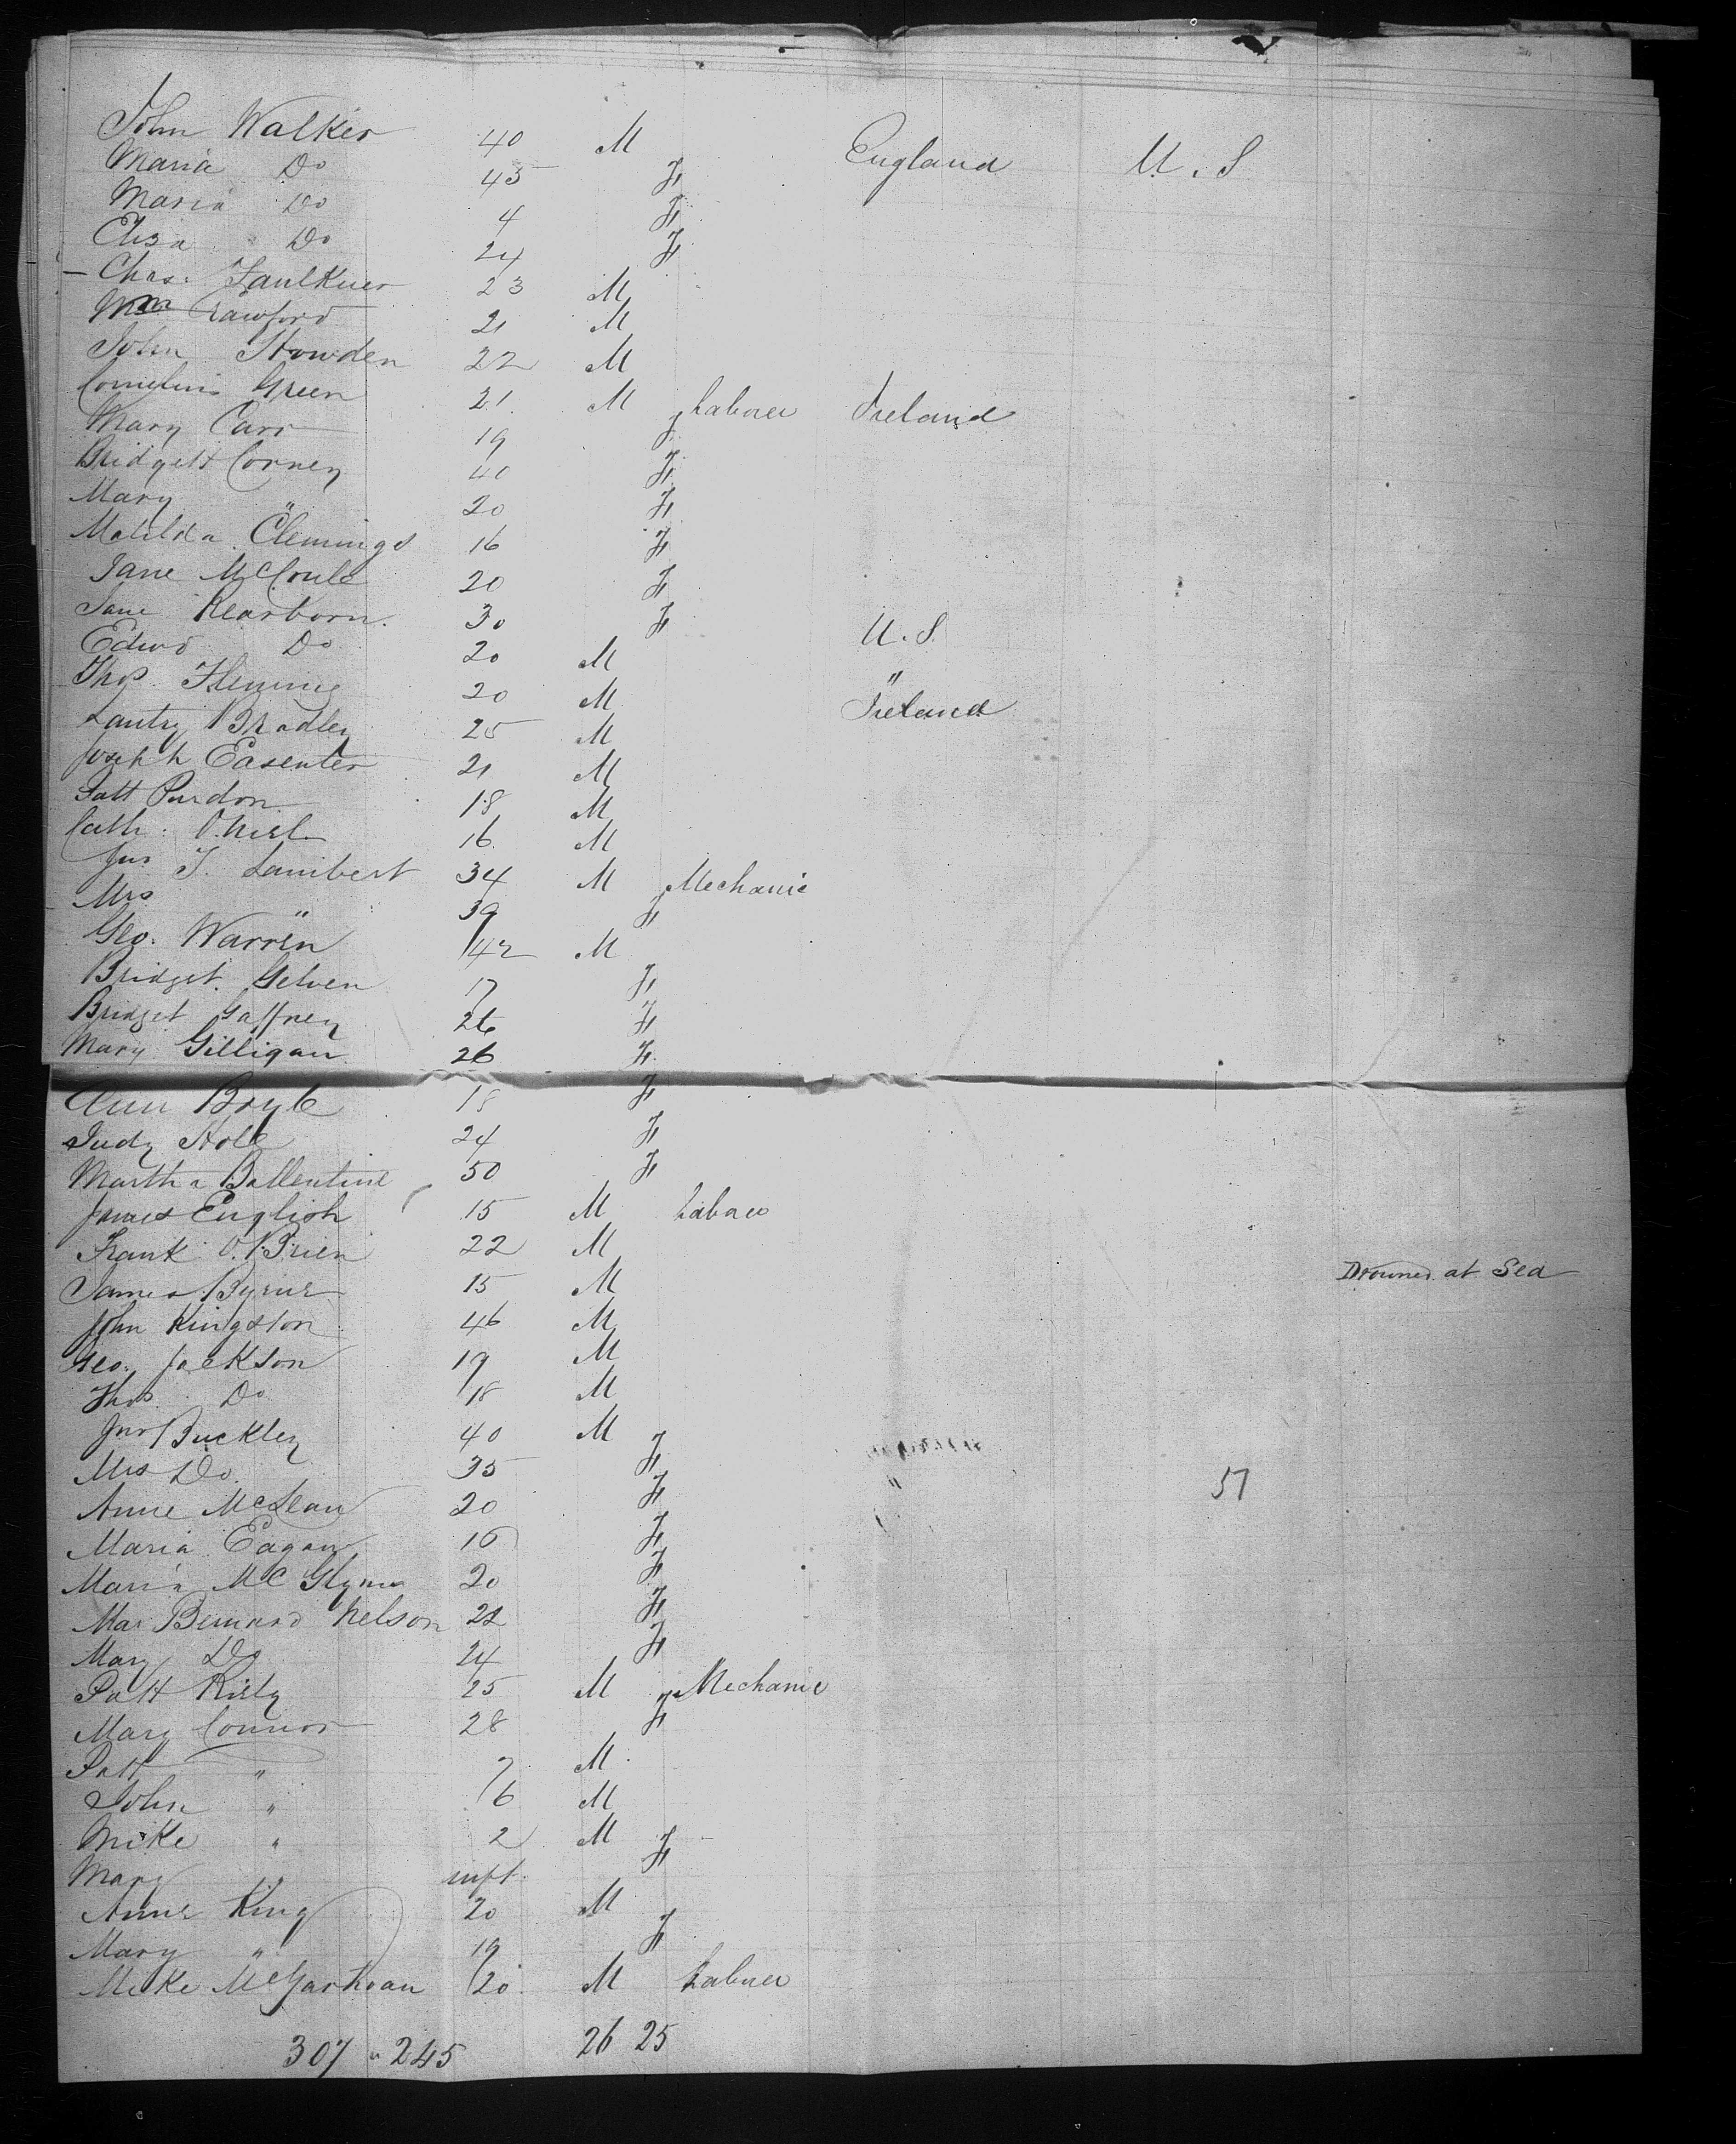 John Walker 40 M England U.S
Maria Do 45 F
Maria Do 4 F
Eliza Do 24 F
Chas. Faulkner 23 M
Wm Crawford 21 M
John Howden 22 M
Cornelius Green 21 M Laborer Ireland
Mary Carr 19 F
Bridgett Corney 40 F
Mary " 20 F
Matilda Clemings 16 F
Jane 20 F
Jane Kearborn. 30 F U.S.
Edwd Do 20 M "
Thos Fleming 20 M Ireland
Bradley 25 M
Joseph Easenter 21 M
Patt Purdon 18 M
Cath. O.Niel 16 M
Jno J. Lambert 34 M Mechanic
Mrs " 39 F
Geo. Warren 42 M
Bridget. Gelven 17 F
Bridget Gaffney 26 F
Mary Gilligan 26 F
Ann Boyle 18 F
Judy Hole 24 F
Martha Ballentine 50 F
James English 15 M Laborer
Frank O.Brien 22 M Drowned at Sea
James Byrne 15 M
John Kingston 46 M
Geo. Jackson 19 M
Thos. Do 18 M
Jno Buckley 40 M
Mrs Do. 35 F "
Anne McLean 20 F 51
Maria Eagan 16 F
Maria McGlynn 20 F
Mar Bernard Nelson 22 F
Mary Do 24 F
Patt Kiely 25 M Mechanic
Mary Connor 28 F
Patt " 7 M
John " 6 M
Mike " 2 M
Mary " inft. F
Anne King 20 M
Mary " 19 F
Mike 20 M Laborer
307 " 245 26 25